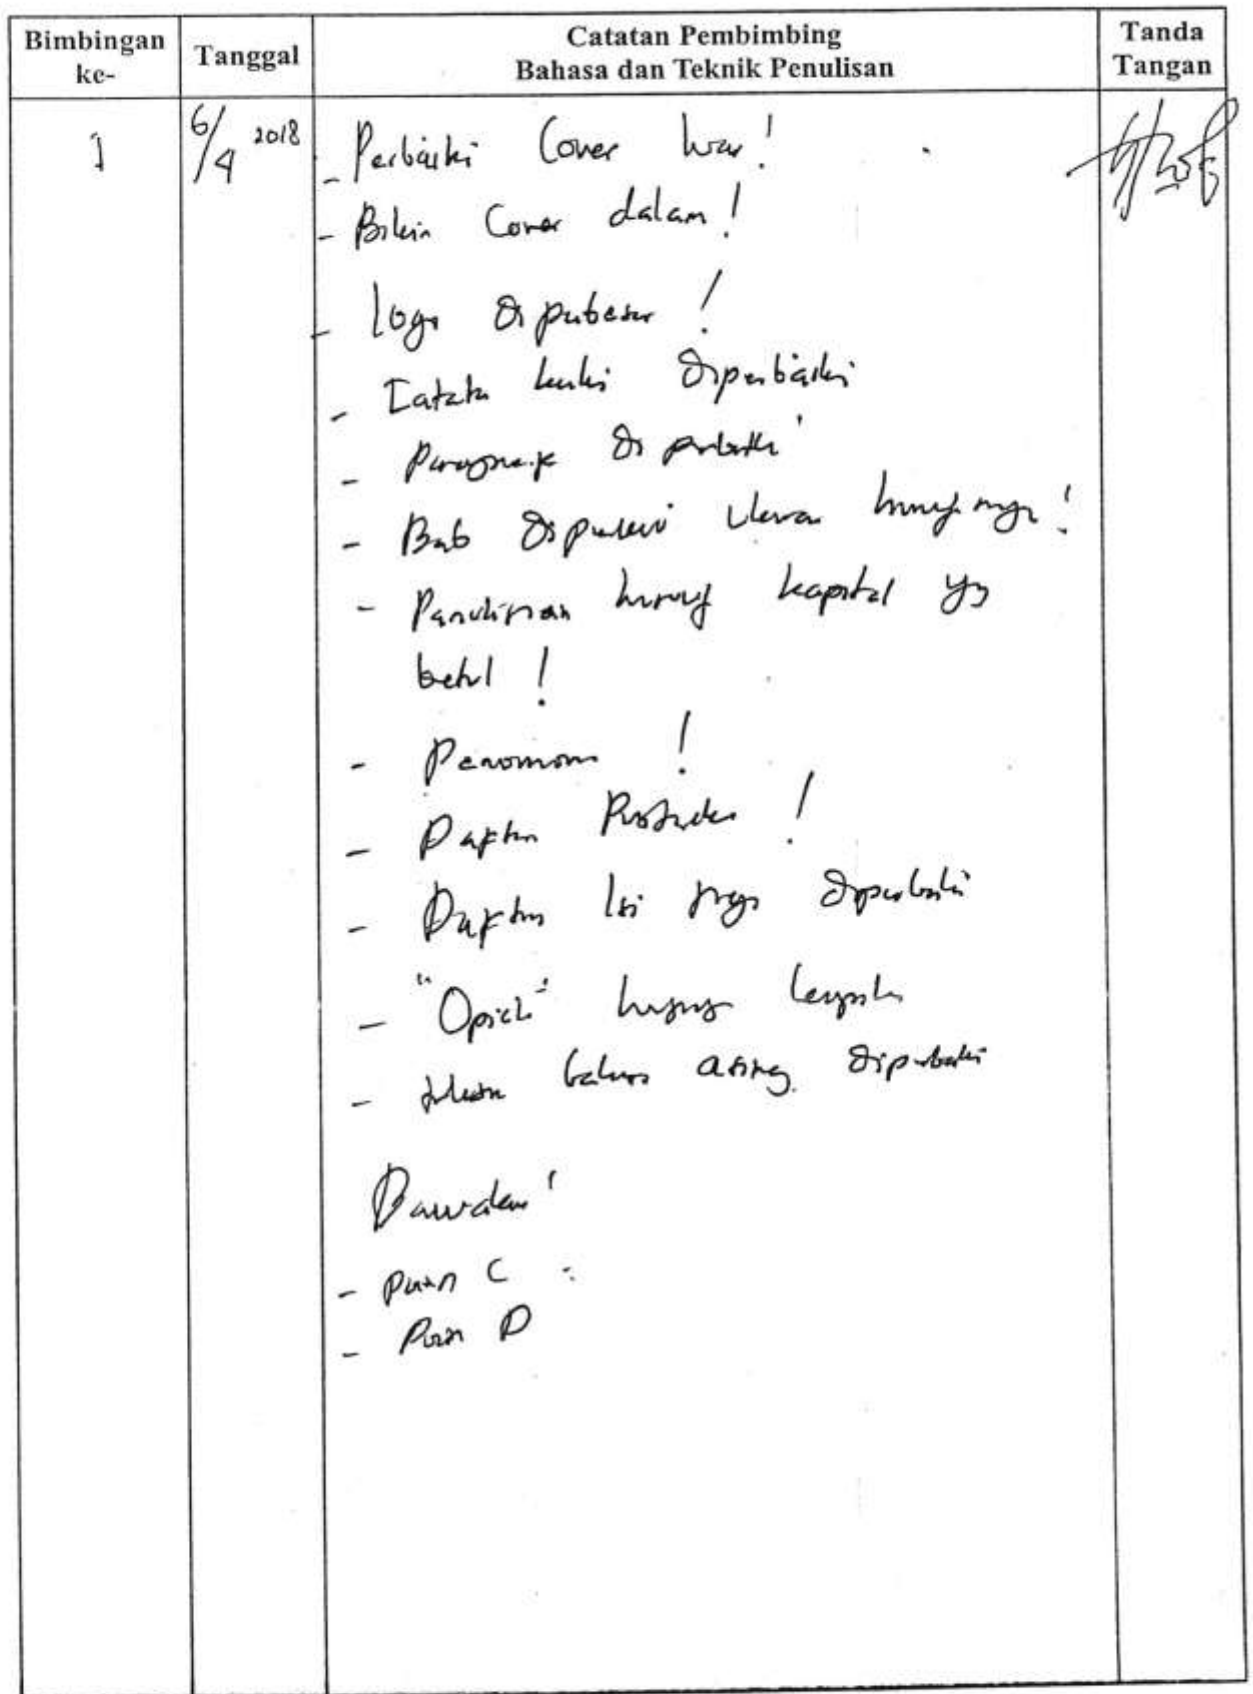 Bimbingan ke-
Tanggal
Catatan Pembimbing
Bahasa dan Teknik Penulisan
Tanda Tangan
1
6/4 2018
- Perbaiki Cover luar!
- Bikin Cover dalam!
- logo diperbesar!
- Catatan kaki diperbaiki
- Paragraf diperbaiki
- Bab diperbaiki ukuran hurufnya!
- Penulisan huruf kapital yg
betul!
- Penomoran!
- Daftar Pustaka!
- Daftar Isi juga diperbaiki
- "Opick"
- bahasa asing diperbaiki
- Poin C
- Poin D